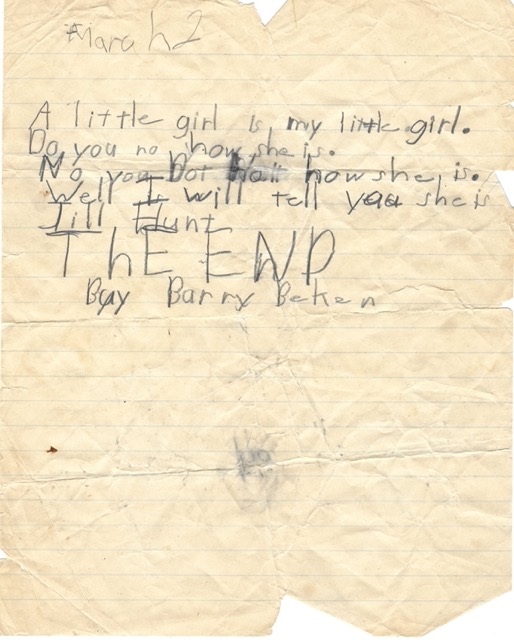 March 2
A little girl is my little girl.
Do you no how she is.
No you Dot how she is.
Well I will tell you she is
Jill Hunt
ThE END
Buy Barry Beken